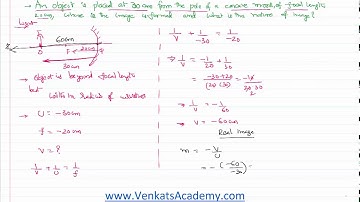 → An object is placed at 30cm from the pole of a concave mirror, of focal length
20cm, Where is the image informed and what is the nature of image?
60cm
20cm
30cm
→ object is beyond focal length
but
within the radius of
→ U = -30cm
f = -20cm
V = ?
1/V + 1/U = 1/f
1/V + 1/-30 = 1/-20
→ 1/V = -1/20 + 1/30
= -30+20/(20)(30)
→ 1/V = -1/60
→ V = -60cm
Real image
m = -V/U
= -(-60/-30)
www.VenkatsAcademy.com